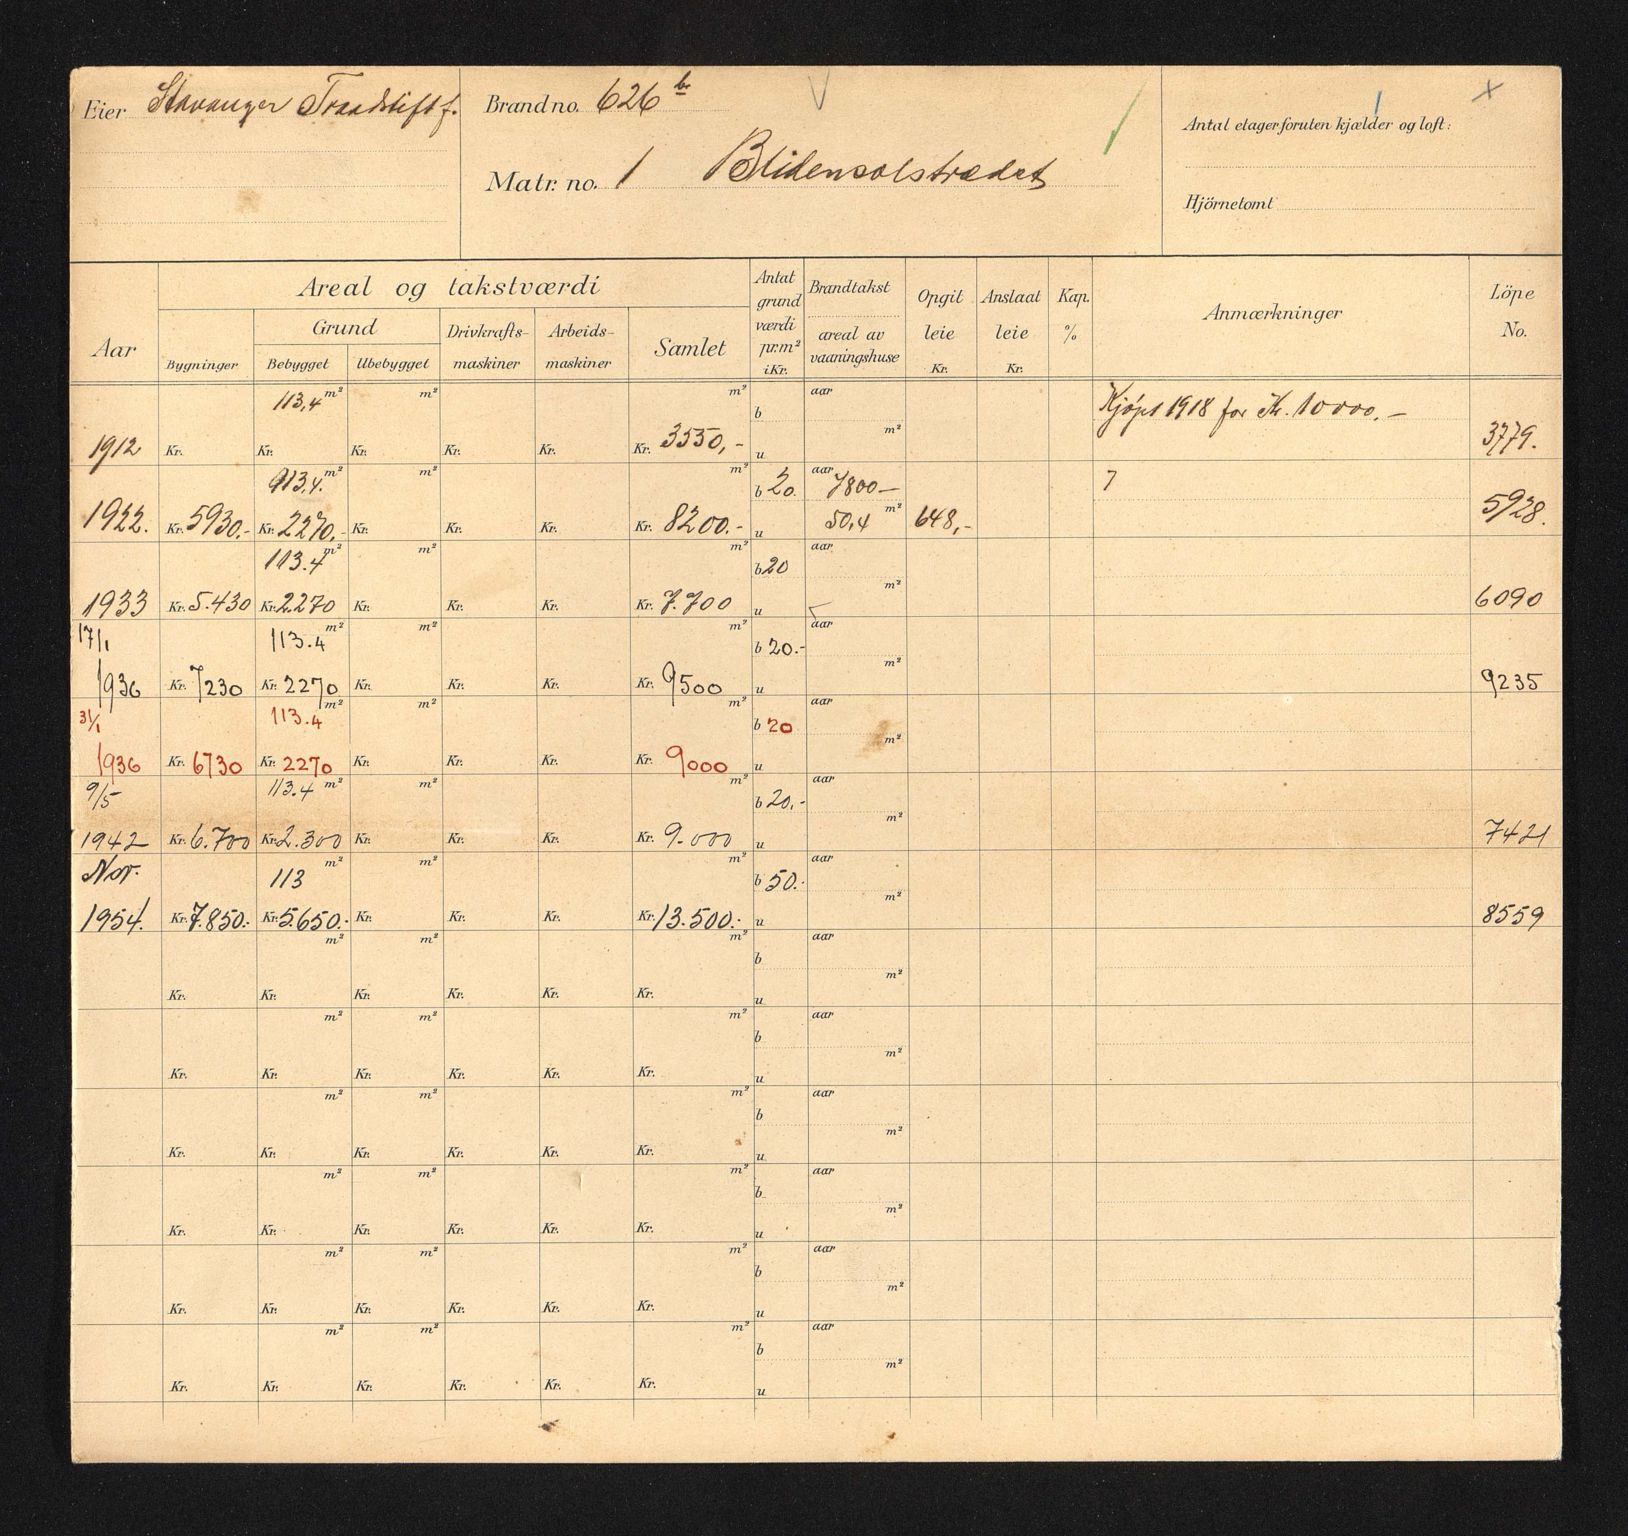 Eier Stavanger Traadstiftf.
Brand no. 626 b
Matr. no. 1 Blidensolstrædet
Antal etager foruten kjælder og loft: 1
Hjörnetomt
Aar
Areal og takstværdi
Bygninger
Grund
Bebygget
Ubebygget
Drivkrafts-maskiner
Arbeids-maskiner
Samlet
Antat grund værdi pr. m² i Kr.
Brandtakst
areal av vaaningshuse
Opgit leie Kr.
Anslaat leie Kr.
Kap. %
Anmærkninger
Löpe No.
113,4 m² m² m² b aar Kjøpt 1918 for Kr. 10000.-
1912 Kr. Kr. Kr. Kr. Kr. Kr. 3550,- u m² 3779.
113,4. m² m² m² b 20. aar 7800- 7
1922. Kr. 5930.- Kr. 2270,- Kr. Kr. Kr. Kr. 8200.- u 50,4 m² 648,- 5928.
113.4 m² m² m² b 20 aar
1933 Kr. 5.430 Kr. 2270 Kr. Kr. Kr. Kr. 7.700 u m² 6090
17/1 113.4 m² m² m² b 20.- aar
1936 Kr. 7230 Kr. 2270 Kr. Kr. Kr. Kr. 9500 u m² 9235
31/1 113.4 m² m² m² b 20 aar
1936 Kr. 6730 Kr. 2270 Kr. Kr. Kr. Kr. 9000 u m²
9/5 113.4 m² m² m² b 20,- aar
1942 Kr. 6.700 Kr. 2.300 Kr. Kr. Kr. Kr. 9.000 u m² 7421
Nov. 113 m² m² m² b 50.- aar
1954. Kr. 7.850.- Kr. 5.650.- Kr. Kr. Kr. Kr. 13.500.- u m² 8559
m² m² m² b aar
Kr. Kr. Kr. Kr. Kr. Kr. u m²
m² m² m² b aar
Kr. Kr. Kr. Kr. Kr. Kr. u m²
m² m² m² b aar
Kr. Kr. Kr. Kr. Kr. Kr. u m²
m² m² m² b aar
Kr. Kr. Kr. Kr. Kr. Kr. u m²
m² m² m² b aar
Kr. Kr. Kr. Kr. Kr. Kr. u m²
m² m² m² b aar
Kr. Kr. Kr. Kr. Kr. Kr. u m²